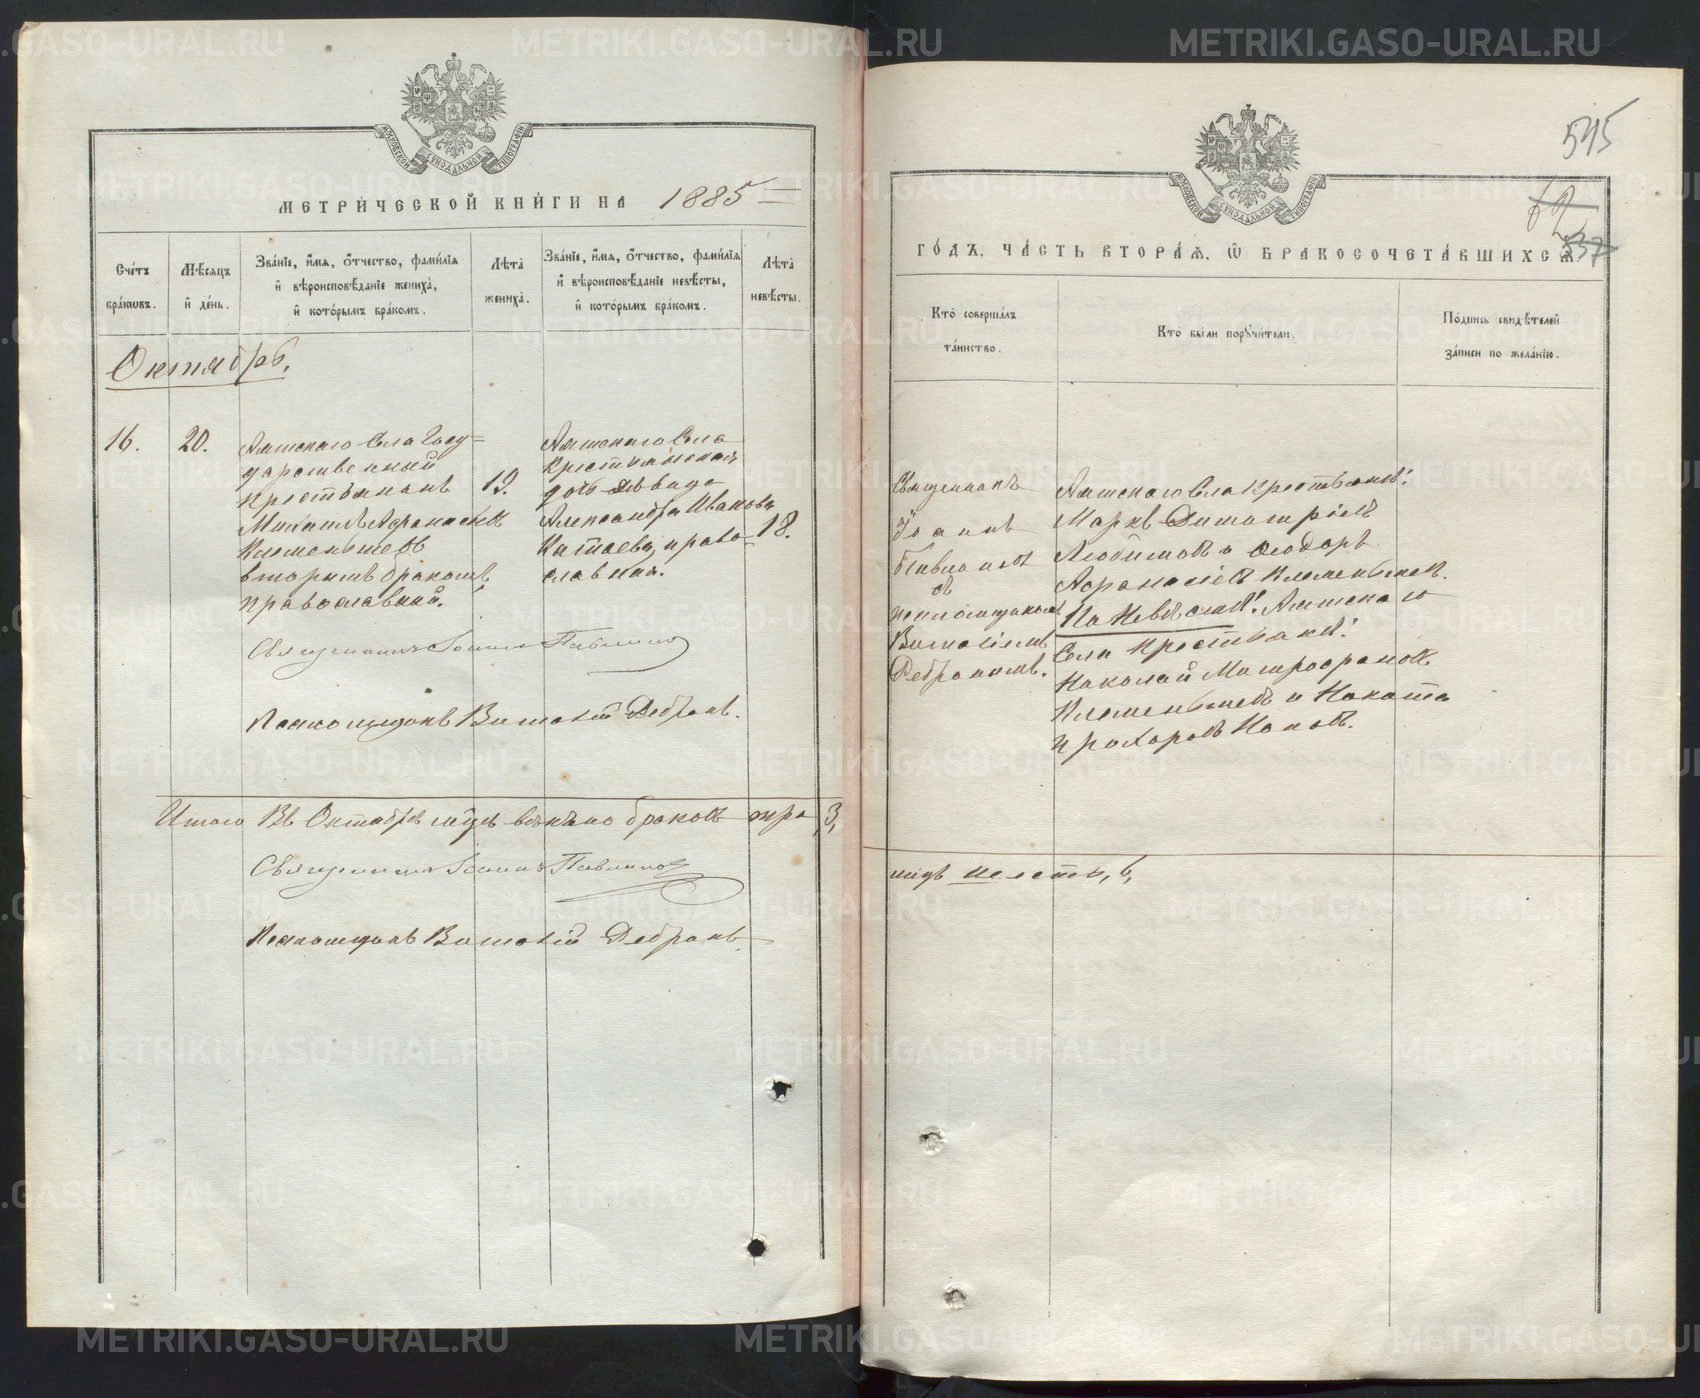 МЕТРИ́ЧЕСКОЙ КНИ́ГИ НА 1885
Сче́тъ бра́кѡвъ.
Мѣ́сяцъ и҆ де́нь.
Зва́нїе, и҆́мя, ѻ҆́тчество, фами́лїя
и҆ вѣроисповѣ́данїе жениха̀,
и҆ кото́рымъ бра́комъ.
Лѣта̀ жениха̀.
Зва́нїе, и҆́мя, ѻ҆́тчество, фами́лїя
и҆ вѣроисповѣ́данїе невѣ́сты,
и҆ кото́рымъ бра́комъ.
Лѣта̀ невѣ́сты.
Октябрь.
16.
20.
Аятскаго Села Госу=
дарственный
крестьянинъ
Михаилъ Афанасіевъ
Клеменьтевъ
вторымъ бракомъ,
православный.
19.
Аятскаго Села
Крестьянская
дочь девица
Александра Иванова
Катаева, право=
славная.
18.
Священникъ Іоаннъ Павлиновъ
Псаломщикъ Виталій Дебринъ.
Итого Въ Октябрѣ м҃цѣ браков три 3,
Священникъ Іоаннъ Павлиновъ
Псаломщикъ Виталій Дебринъ
545
62
537
ГО́ДЪ, ЧА́СТЬ ВТОРА́Я, Ѡ҆ БРАКОСОЧЕТА́ВШИХСЯ.
Кто̀ соверша́лъ
та́инство.
Кто̀ бы́ли порꙋчи́тели.
По́дпись свидѣ́телей
за́писи по жела́нїю.
Священникъ
Іоаннъ
Павлиновъ
съ
псаломщикомъ
Виталіемъ
Дебринымъ.
Аятскаго Села Крестьяне:
Маркъ Димитріевъ
Любимовъ и Ѳеодоръ
Афанасіевъ Клеменьтевъ.
По Невѣстѣ: Аятскаго
Села Крестьяне:
Николай Митрофановъ
Клеменьтевъ и Никита
Прохоровъ Попов.